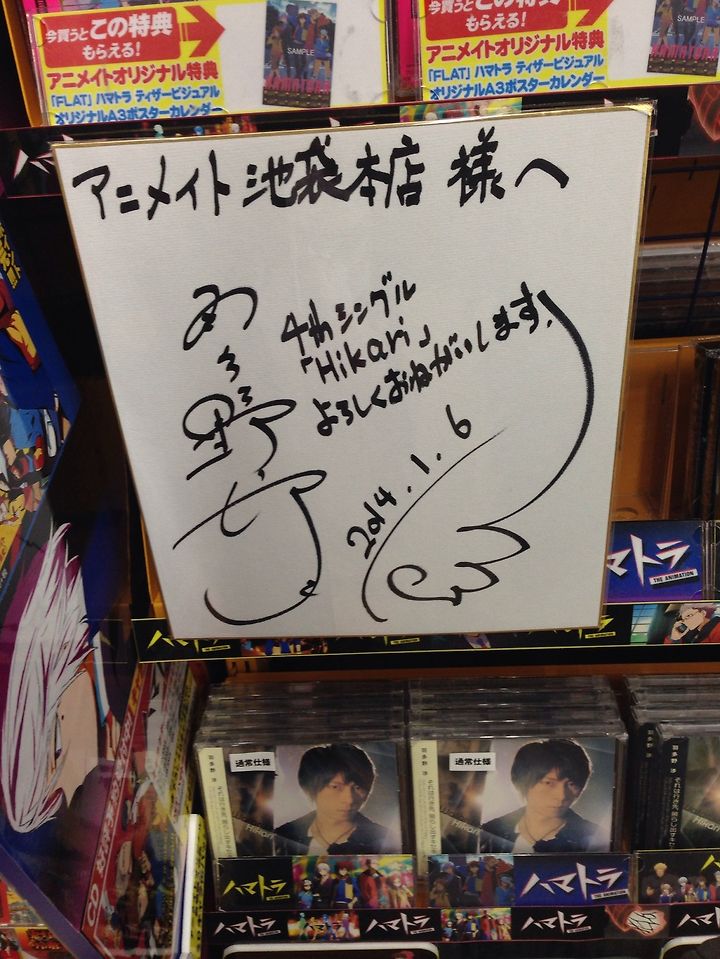 今買うとこの特典
もらえる!
アニメイトオリジナル特典
「FLAT」ハマトラ ティザービジュアル
オリジナルA3ポスターカレンダー
SAMPLE
今買うとこの特典
もらえる!
アニメイトオリジナル特典
「FLAT」ハマトラ ティザービジュアル
オリジナルA3ポスターカレンダー
SAMPLE
アニメイト池袋本店 様へ
4thシングル
「Hikari」
よろしくおねがいします!
2014.1.6
ハマトラ
THE ANIMATION
ハマトラ
通常仕様
羽多野 渉
Hikari
通常仕様
羽多野 渉
Hikari
羽多野 渉
ハマトラ
THE ANIMATION
ハマトラ
THE ANIMATION
ハマトラ
ハマトラ
ハマトラ
ハマトラ
CD